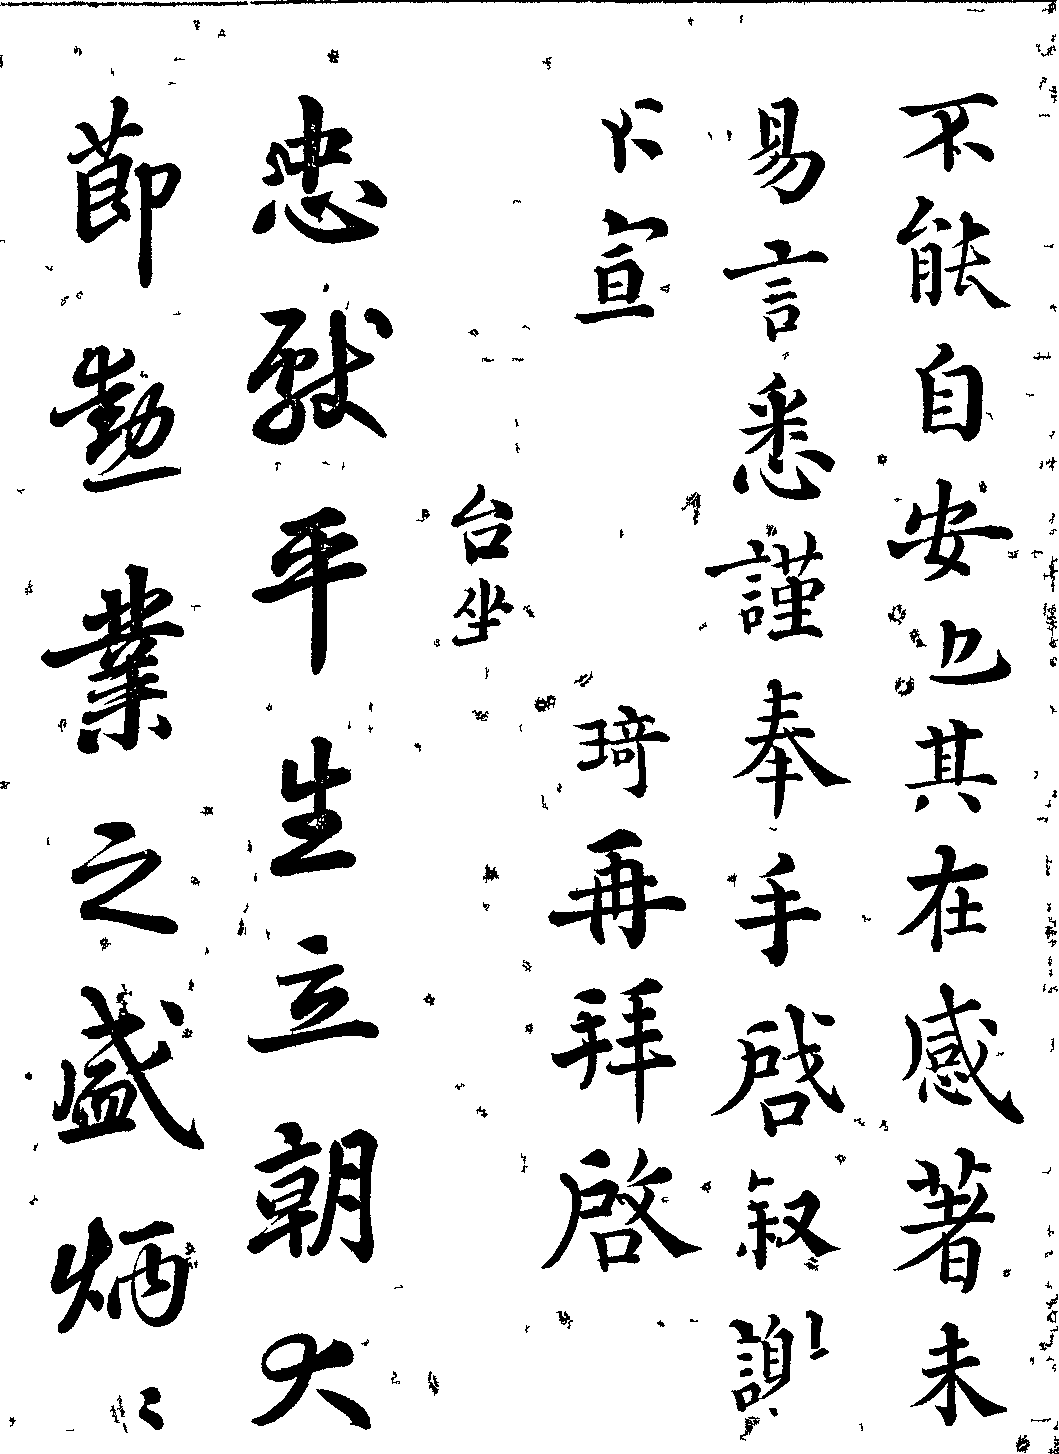 不能自安也其在感著未
易言悉謹奉手啓叙謝
不宣 琦再拜啓
台坐
忠獻平生立朝大
節勳業之盛炳〻